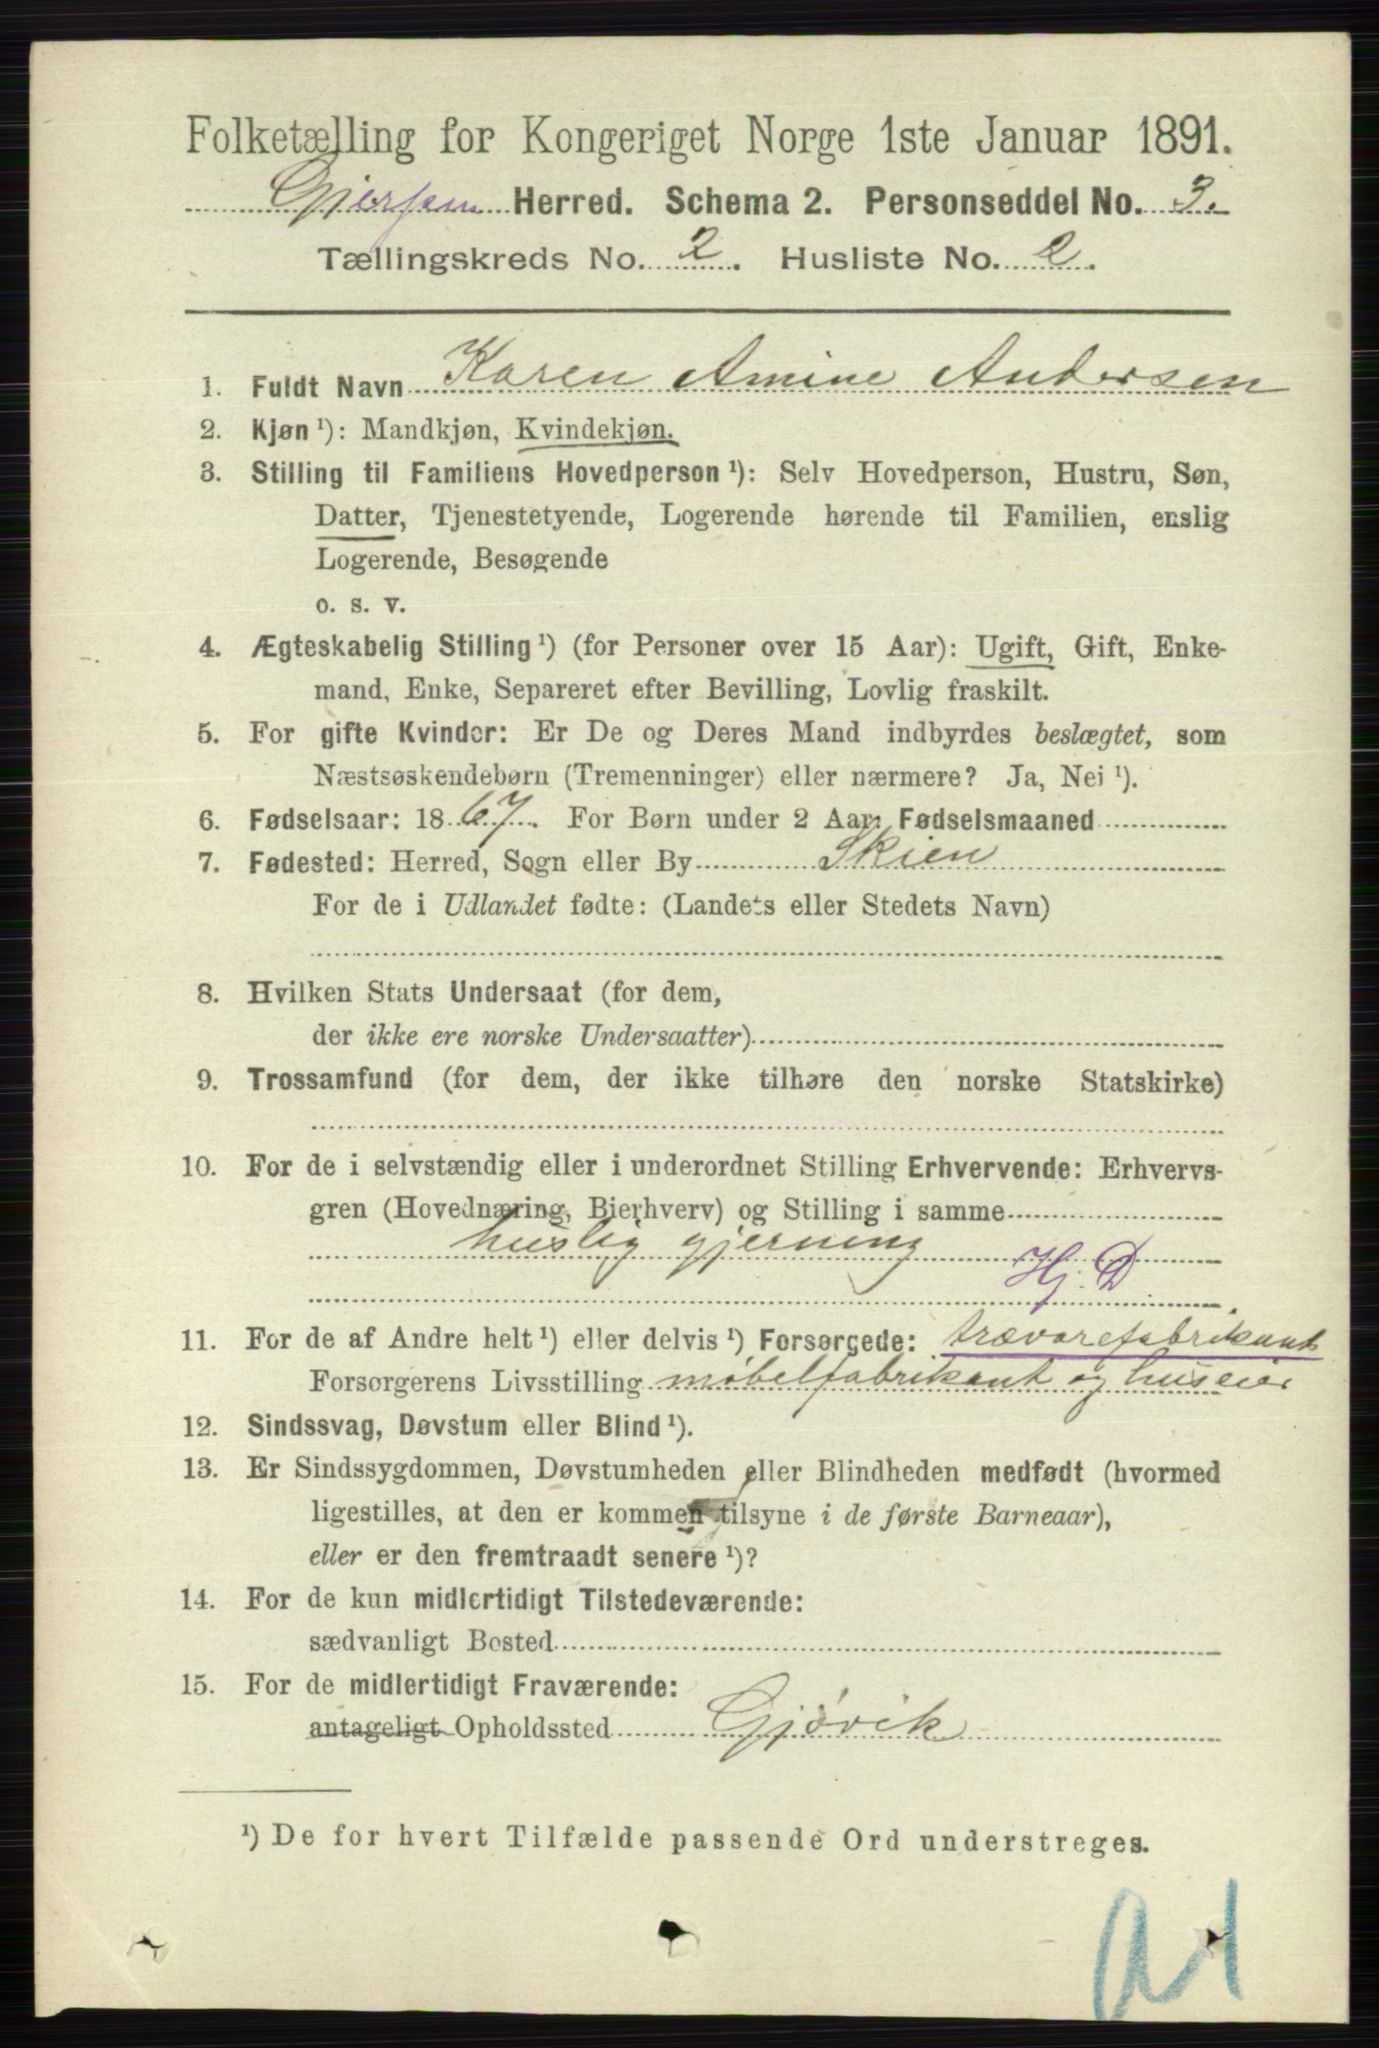 Folketælling for Kongeriget Norge 1ste Januar 1891.
Gjerpen Herred. Schema 2. Personseddel No. 3.
Tællingskreds No. 2. Husliste No. 2.
1. Fuldt Navn Karen Amine Andersen
2. Kjøn ¹): Mandkjøn, Kvindekjøn.
3. Stilling til Familiens Hovedperson ¹): Selv Hovedperson, Hustru, Søn,
Datter, Tjenestetyende, Logerende hørende til Familien, enslig
Logerende, Besøgende
o. s. v.
4. Ægteskabelig Stilling ¹) (for Personer over 15 Aar): Ugift, Gift, Enke-
mand, Enke, Separeret efter Bevilling, Lovlig fraskilt.
5. For gifte Kvinder: Er De og Deres Mand indbyrdes beslægtet, som
Næstsøskendebørn (Tremenninger) eller nærmere? Ja, Nei ¹).
6. Fødselsaar: 1867. For Børn under 2 Aar: Fødselsmaaned
7. Fødested: Herred, Sogn eller By Skien
For de i Udlandet fødte: (Landets eller Stedets Navn)
8. Hvilken Stats Undersaat (for dem,
der ikke ere norske Undersaatter)
9. Trossamfund (for dem, der ikke tilhøre den norske Statskirke)
10. For de i selvstændig eller i underordnet Stilling Erhvervende: Erhvervs-
gren (Hovednæring, Bierhverv) og Stilling i samme
huslig gjerning
Hj. D.
11. For de af Andre helt ¹) eller delvis ¹) Forsørgede: trævarefabrikant
Forsørgerens Livsstilling møbelfabrikant og huseier
12. Sindssvag, Døvstum eller Blind ¹).
13. Er Sindssygdommen, Døvstumheden eller Blindheden medfødt (hvormed
ligestilles, at den er kommen tilsyne i de første Barneaar),
eller er den fremtraadt senere ¹)?
14. For de kun midlertidigt Tilstedeværende:
sædvanligt Bosted
15. For de midlertidigt Fraværende:
antageligt Opholdssted Gjøvik
¹) De for hvert Tilfælde passende Ord understreges.